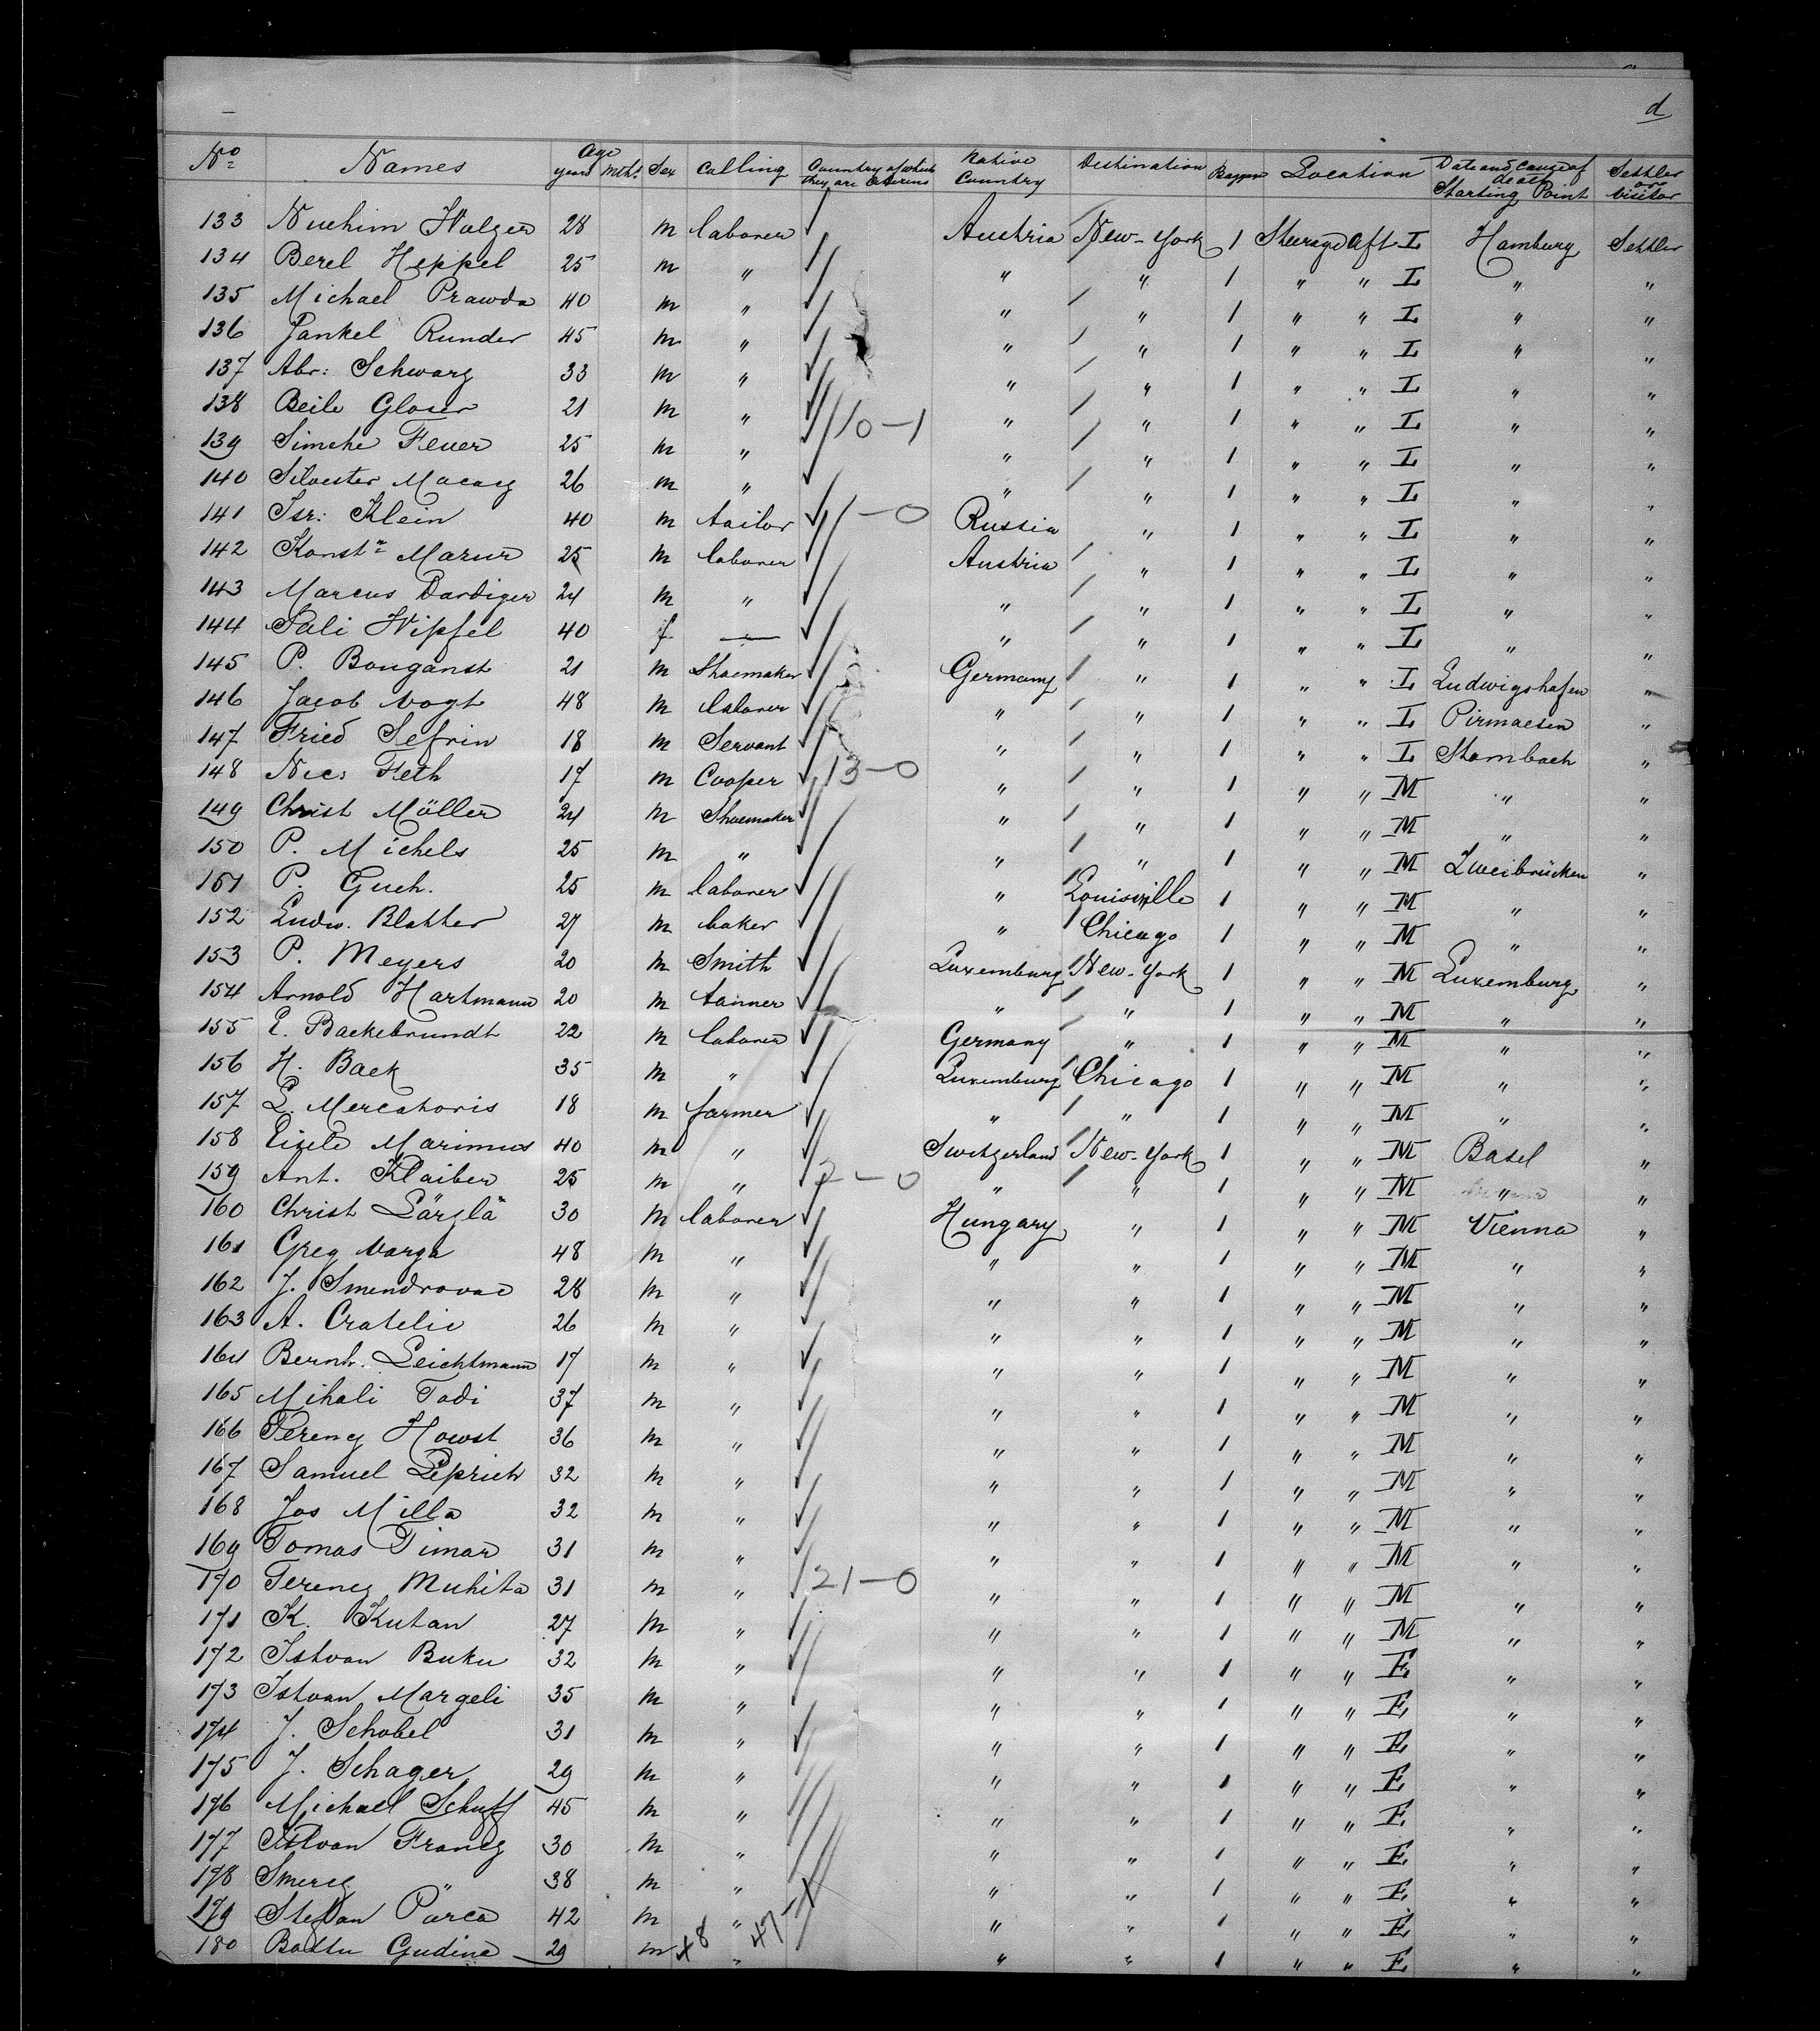 d
No Names Age years Mths Sex Calling Country of which they are citizens Native Country Destination Location Date and Cause of death Starting Point Settler or Visitor
133 28 m laborer Austria New-York 1 Steerage aft L Hamburg Settler
134 Berel Heppel 25 m " " " 1 " " L " "
135 Michael Prawda 40 m " " " 1 " " L " "
136 Jankel Runder 45 m " " " 1 " " L " "
137 Abr: Schwarz 33 m " " " 1 " " L " "
138 Beile Glaser 21 m " " " 1 " " L " "
10-1
139 Simche Feuer 25 m " " " 1 " " L " "
140 Silvester 26 m " " " 1 " " L " "
141 Isr: Klein 40 m tailor 1-0 Russia " 1 " " L " "
142 Konstn Mazur 25 m laborer Austria " 1 " " L " "
143 Marcus Dardiger 24 m " " " 1 " " L " "
144 Sali Wipfel 40 f — " " 1 " " L " "
145 P. Bonganst 21 m Shoemaker Germany " 1 " " L Ludwigshafen "
146 Jacob Vogt 48 m laborer " " 1 " " L Pirmaesen "
147 Fried Sefrin 18 m Servant " " 1 " " L Stambach "
148 Nic: Feth 17 m Cooper 13-0 " " 1 " " M " "
149 Christ Möller 24 m Shoemaker " " 1 " " M " "
150 P. Michels 25 m " " " 1 " " M Zweibrücken "
151 P. Guch. 25 m laborer " Louisville 1 " " M " "
152 Ludw. Blatter 27 m baker " Chicago 1 " " M " "
153 P. Meyers 20 m Smith Luxemburg New-York 1 " " M Luxemburg "
154 Arnold Hartmann 20 m tanner " " 1 " " M " "
155 E. Backebrundt 22 m laborer Germany " 1 " " M " "
156 H. Back 35 m " Luxemburg Chicago 1 " " M " "
157 L. Mercatoris 18 m farmer " " 1 " " M " "
158 Eizele Marimus 40 m " Switzerland New-York 1 " " M Basel "
159 Ant. Klaiber 25 m " 7-0 " " 1 " " M " "
160 Christ 30 m laborer Hungary " 1 " " M Vienna "
161 Greg Varga 48 m " " " 1 " " M " "
162 J. Smendrovac 28 m " " " 1 " " M " "
163 A. Cratelic 26 m " " " 1 " " M " "
164 Bernh. Leichtmann 17 m " " " 1 " " M " "
165 Mihali Todi 37 m " " " 1 " " M " "
166 Ferency Howst 36 m " " " 1 " " M " "
167 Samuel Peprich 32 m " " " 1 " " M " "
168 Jos Milla 32 m " " " 1 " " M " "
169 Tomas Timar 31 m " " " 1 " " M " "
170 Ferency Muhita 31 m " 21-0 " " 1 " " M " "
171 K. Kutan 27 m " " " 1 " " M " "
172 Istvan Buku 32 m " " " 1 " " E " "
173 Istvan Margeli 35 m " " " 1 " " E " "
174 J. Schobel 31 m " " " 1 " " E " "
175 J. Schager 29 m " " " 1 " " E " "
176 Michael Schuff 45 m " " " 1 " " E " "
177 Istvan Francz 30 m " " " 1 " " E " "
178 " 38 m " " " 1 " " E " "
179 Stefan 42 m " " " 1 " " E " "
180 Gudina 29 m " " " 1 " " E " "
48 47-1